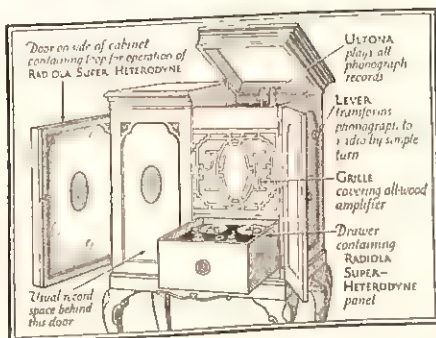 Door on side of cabinet
containing loop for operation of
RADIOLA SUPER HETERODYNE
ULTONA
plays all
phonograph
records
LEVER
transforms
phonograph to
radio by simple
turn
GRILLE
covering all-wood
amplifier
Drawer
containing
RADIOLA
SUPER-
HETERODYNE
panel
Usual record
space behind
this door